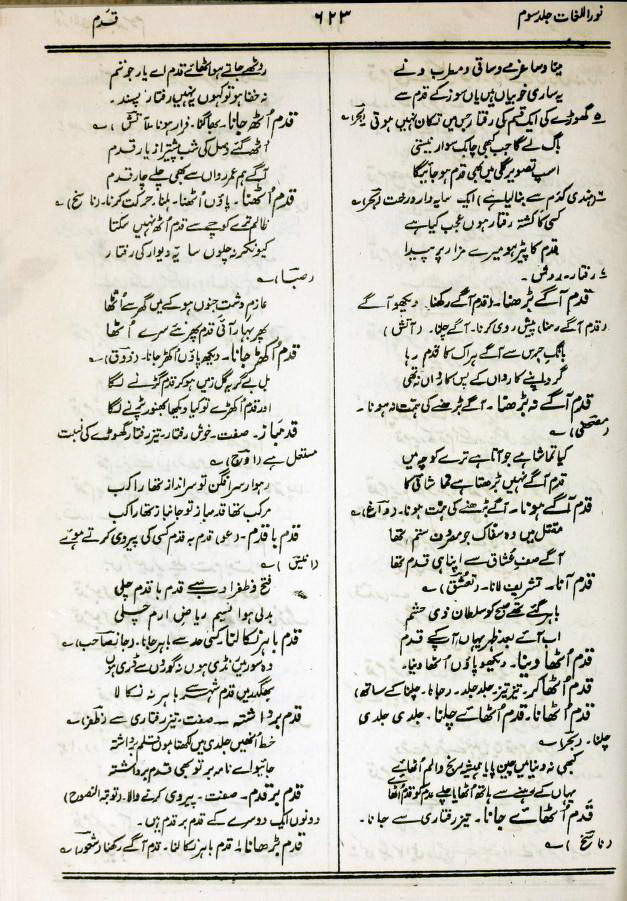 نوراللغات جلد سوم
۶۲۳
قدم
مینا و ساغر مے و ساقی و مطرب و نے
یہ ساری خوبیاں ہیں یاں سوز کے قدم سے
۵ گھوڑے کی ایک قسم کی رفتار جس میں تکان نہیں ہوتی (بحر) ؎
باگ لے گا جب کبھی چابک سوار نیستی
اسپ تصویر گلی میں بھی قدم ہو جائیگا
۶ (ہندی کدم سے بنا لیا ہے) ایک سایہ دار درخت (بحر) ؎
کسی کا کشتہ رفتار ہوں عجب کیا ہے
قدم کا پیڑ ہو میرے مزار پر پیدا
۷ رفتار۔ روش۔
قدم آگے بڑھنا۔ (قدم آگے رکھنا۔ دیکھو آگے
قدم آگے رہنا) پیش روی کرنا۔ آگے چلنا۔ (آتش) ؎
بانگ جرس سے آگے ہر اک کا قدم رہا
گرد اپنے کارواں کے پس کارواں نہ تھی
قدم آگے نہ بڑھنا۔ آگے بڑھنے کی ہمت نہ ہونا۔
(مصحفی) ؎
کیا تماشا ہے جو آتا ہے ترے کوچہ میں
قدم آگے نہیں بڑھتا ہے تماشائی کا
قدم آگے ہونا۔ آگے بڑھنے کی ہمت ہونا۔ (داغ) ؎
مقتل میں وہ سفاک جو مصروف ستم تھا
آگے صف عشاق سے اپنا ہی قدم تھا
قدم آنا۔ تشریف لانا۔ (تعشق) ؎
باہر گئے تھے صبح کو سلطان ذی حشم
اب آئے بعد ظہر یہاں آپ کے قدم
قدم اُٹھا دینا۔ دیکھو پاؤں اُٹھا دینا۔
قدم اُٹھا کر۔ تیز تیز۔ جلد جلد۔ (جانا۔ چلنا کے ساتھ)
قدم اُٹھانا۔ قدم اُٹھائے چلنا۔ جلدی جلدی
چلنا۔ (بحر) ؎
کبھی نہ دنیا میں چین پایا ہمیشہ رنج و الم اُٹھائے
یہاں کے رہنے سے ہاتھ اُٹھایا چلے عدم کو قدم اُٹھا
قدم اُٹھائے جانا۔ تیز رفتاری سے جانا۔
(ناسخ) ؎
روٹھے جاتے ہو اٹھائے قدم اے یار جو تم
نہ خفا ہو تو کہوں یہ نہیں رفتار پسند
قدم اُٹھ جانا۔ بھاگنا۔ فرار ہونا (آتش) ؎
اُٹھ گئے وصل کی شب پیشتر از یار قدم
آگے ہم عمر رواں سے بھی چلے چار قدم
قدم اُٹھنا۔ پاؤں اُٹھنا۔ ہلنا۔ حرکت کرنا۔ (ناسخ) ؎
ظالم ترے کوچے سے قدم اُٹھ نہیں سکتا
کیونکر نہ چلوں سایہ دیوار کی رفتار
(صبا) ؎
عازم دشت جنوں ہو کے میں گھر سے اُٹھا
پھر بہار آئی قدم پھر نئے سرے اُٹھا
قدم اُکھڑ جانا۔ دیکھو پاؤں اُکھڑ جانا۔ (ذوق) ؎
بل بے گریہ گل زمیں ہو کر قدم گڑنے لگا
اور قدم اُکھڑے تو کیا دیکھا بھنور پڑنے لگا
قدمباز۔ صفت۔ خوش رفتار۔ تیز رفتار گھوڑے کی نسبت
مستعمل ہے (اوج) ؎
رہوار سرافگن تو سرانداز تھا راکب
مرکب تھا قدمباز تو جانباز تھا راکب
قدم باقدم۔ (عو) قدم بہ قدم کسی کی پیروی کرتے ہوئے
(انیس) ؎
فتح و ظفر ادب سے قدم با قدم چلی
بدلی ہوا نسیم ریاض ارم چلی
قدم باہر نکالنا کسی حد سے باہر جانا۔ (جان صاحب) ؎
وہ سورمیں انڈی ہوں نہ گوروں سے ڈری ہوں
بھگدڑ میں قدم شہر سے باہر نہ نکالا
قدم برداشتہ۔ صفت۔ تیز رفتاری سے (ظفر) ؎
خط اُنھیں جلدی میں لکھتا ہوں قلم برداشتہ
جائیو اے نامہ بر تو بھی قدم برداشتہ
قدم بر قدم۔ صفت۔ پیروی کرنے والا۔ (توبۃ النصوح)
دونوں ایک دوسرے کے قدم بر قدم ہیں۔
قدم بڑھانا۔ قدم باہر نکالنا۔ قدم آگے رکھنا (شعور) ؎